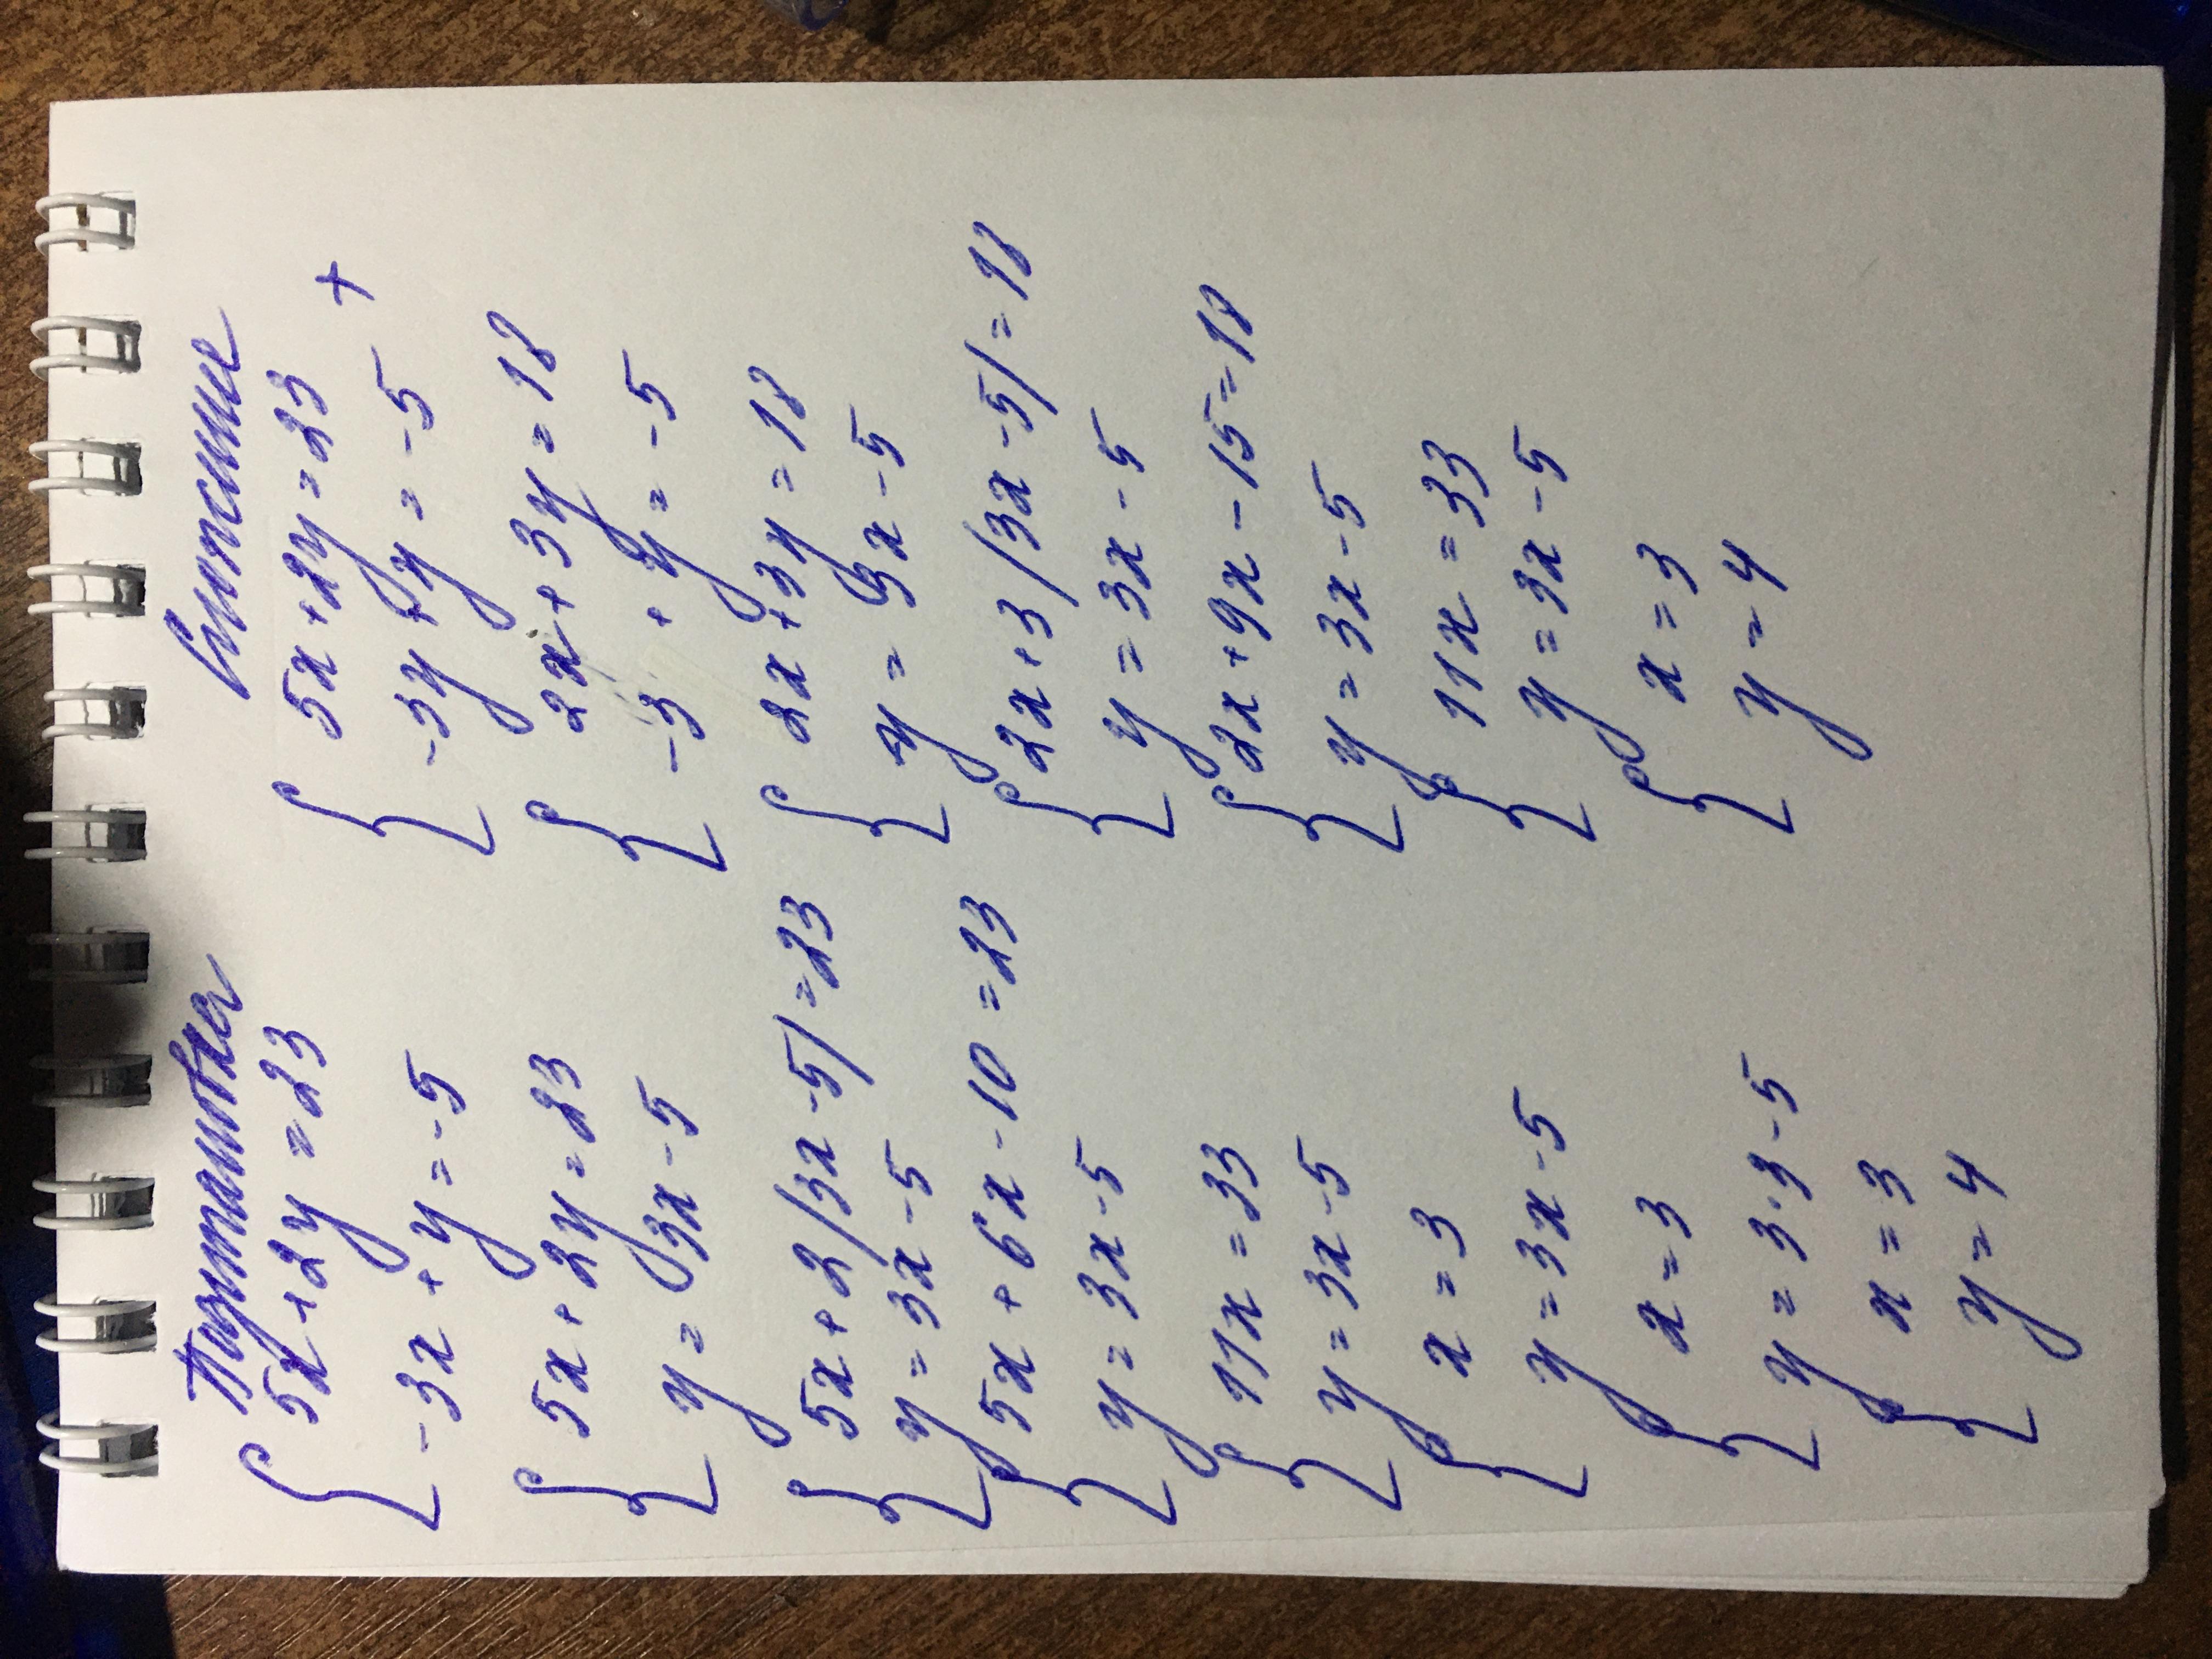 Подстановка
5x + 2y = 23
-3x + y = -5
5x + 2y = 23
y = 3x - 5
5x + 2(3x - 5) = 23
y = 3x - 5
5x + 6x - 10 = 23
y = 3x - 5
11x = 33
y = 3x - 5
x = 3
y = 3x - 5
x = 3
y = 3·3 - 5
x = 3
y = 4
Сложение
5x + 2y = 23 +
-3y + y = -5
2x + 3y = 18
-3 + y = -5
2x + 3y = 18
y = 3x - 5
2x + 3(3x - 5) = 18
y = 3x - 5
2x + 9x - 15 = 18
y = 3x - 5
11x = 33
y = 3x - 5
x = 3
y = 4